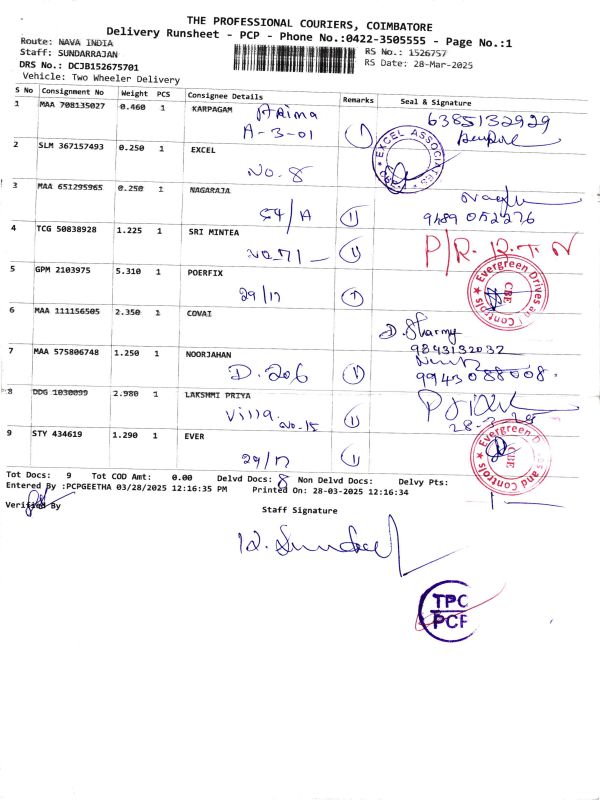 THE PROFESSIONAL COURIERS, COIMBATORE
Delivery Runsheet - PCP - Phone No.:0422-3505555 - Page No.:1
Route: NAVA INDIA
RS No.: 1526757
Staff: SUNDARRAJAN
RS Date: 28-Mar-2025
DRS No.: DCJB152675701
Vehicle: Two Wheeler Delivery
S No Consignment No Weight PCS Consignee Details Remarks Seal & Signature
1 MAA 708135027 0.460 1 KARPAGAM 6385132929
A-3-01
2 SLM 367157493 0.250 1 EXCEL EXCEL ASSOCIATES
NO. 8
3 MAA 651295965 0.250 1 NAGARAJA
54/A 9489052276
4 TCG 50838928 1.225 1 SRI MINTEA
NO.71
5 GPM 2103975 5.310 1 POERFIX Evergreen Drives and Controls CBE
29/17
6 MAA 111156505 2.350 1 COVAI
D. Sharmy
9843132032
7 MAA 575806748 1.250 1 NOORJAHAN
D. 206 9943088008.
8 DDG 1030099 2.980 1 LAKSHMI PRIYA
Villa NO.15 28-3-25
9 STY 434619 1.290 1 EVER Evergreen Drives and Controls CBE
29/17
Tot Docs: 9 Tot COD Amt: 0.00 Delvd Docs: 8 Non Delvd Docs: Delvy Pts:
Entered By :PCPGEETHA 03/28/2025 12:16:35 PM Printed On: 28-03-2025 12:16:34
Verified By Staff Signature
TPC
PCP